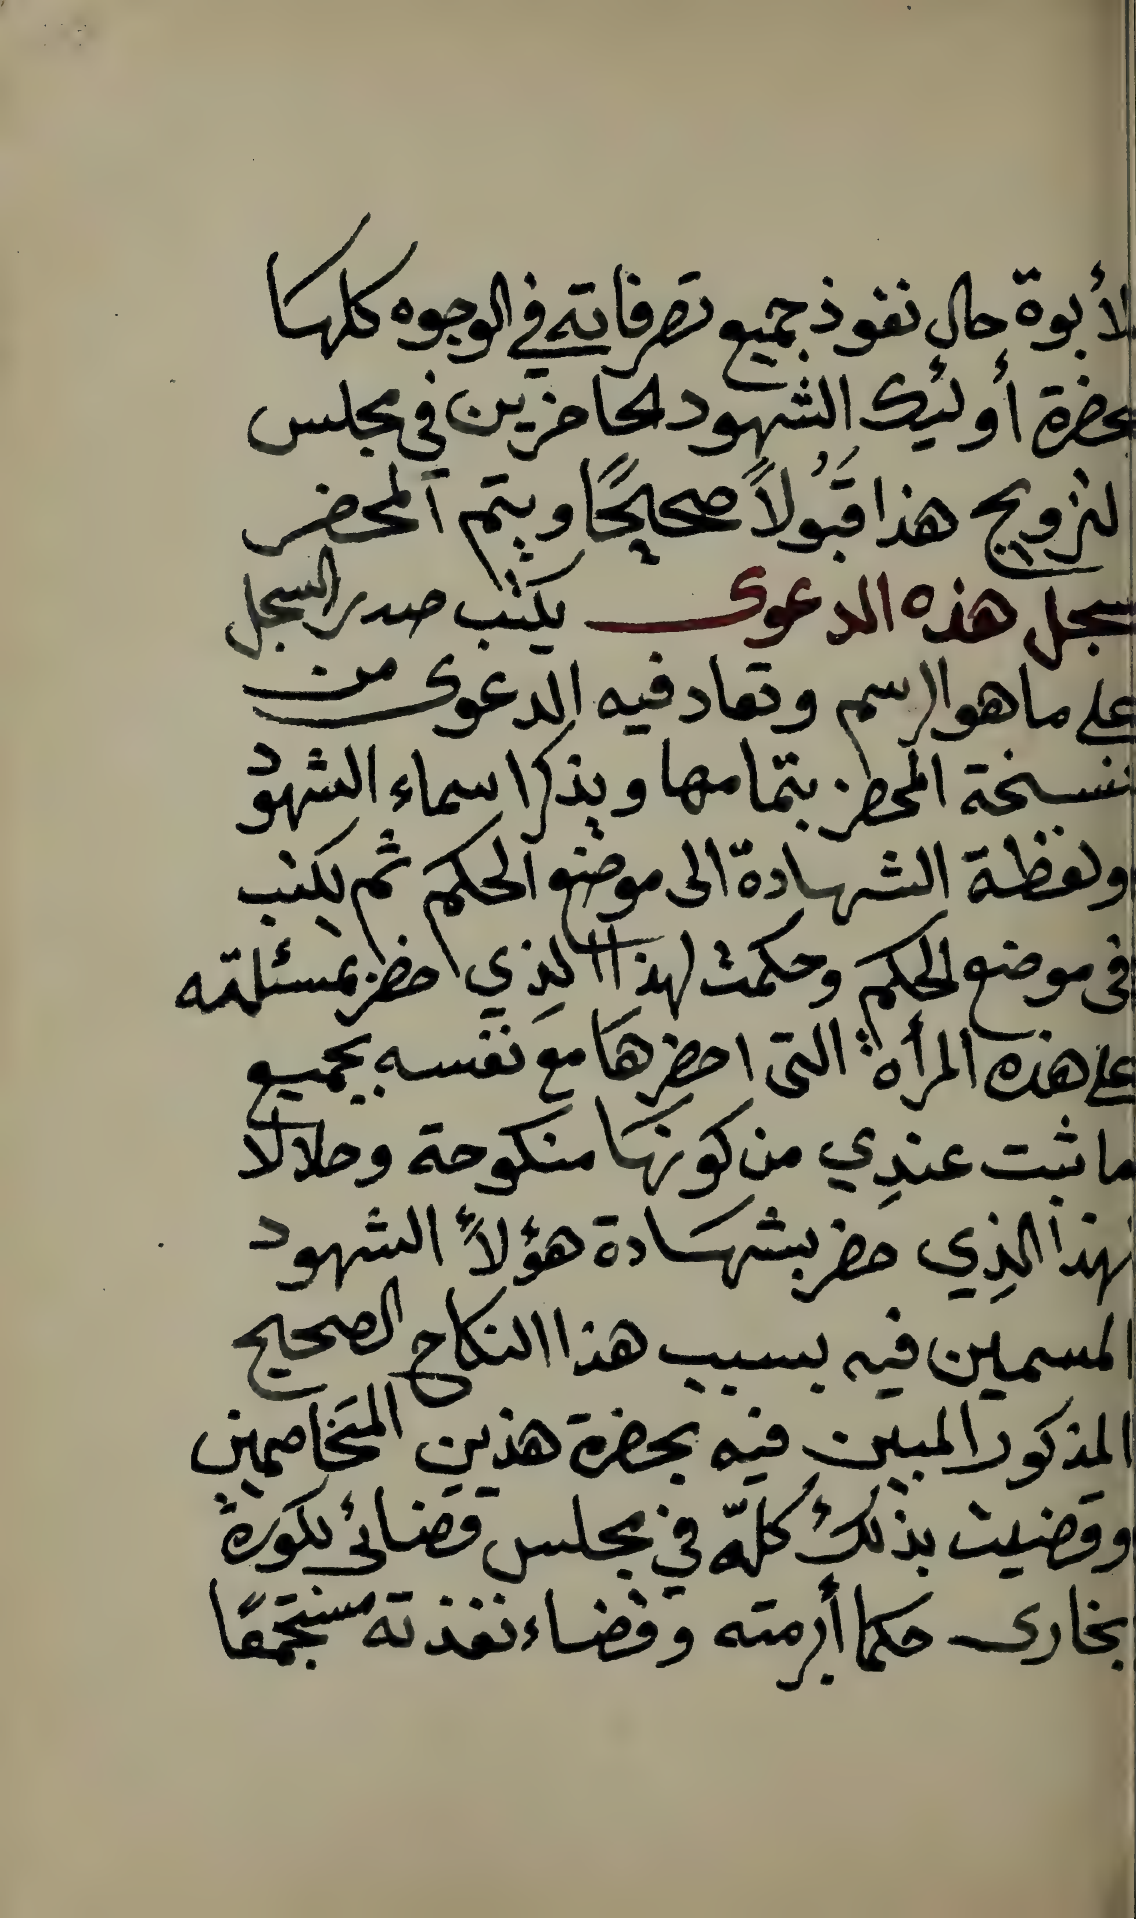 لأبوة حال نفوذ جميع تصرفاته في الوجوه كلها
بحضرة أولئك الشهود الحاضرين في مجلس
لتزويج هذا قَبُولاً صحيحًا ويتم المحضر
سجل هذه الدعوى يكتب صدر السجل
على ما هو الرسم وتعاد فيه الدعوى من
نسخة المحضر بتمامها ويذكر اسماء الشهود
ولفظة الشهادة الى موضع الحكم ثم يكتب
في موضع الحكم وحكمت لهذا الذِي حضر بمسئلته
على هذه المرأة التى احضرهَا معَ نفسه بجميع
ما ثبت عندِي من كونهَا منكوحة وحلالا
لهذا الذِي حضر بشهَادة هؤلأً الشهود
المسمين فيه بسبب هذا النكاح الصحيح
المذكور المبين فيه بحضرة هذين المتخَاصمين
وقضيت بذلكُ كُلّه في مجلس قضائي بكورة
بخارى حكما أبرمته وقضاء نفذته مستجمعًا